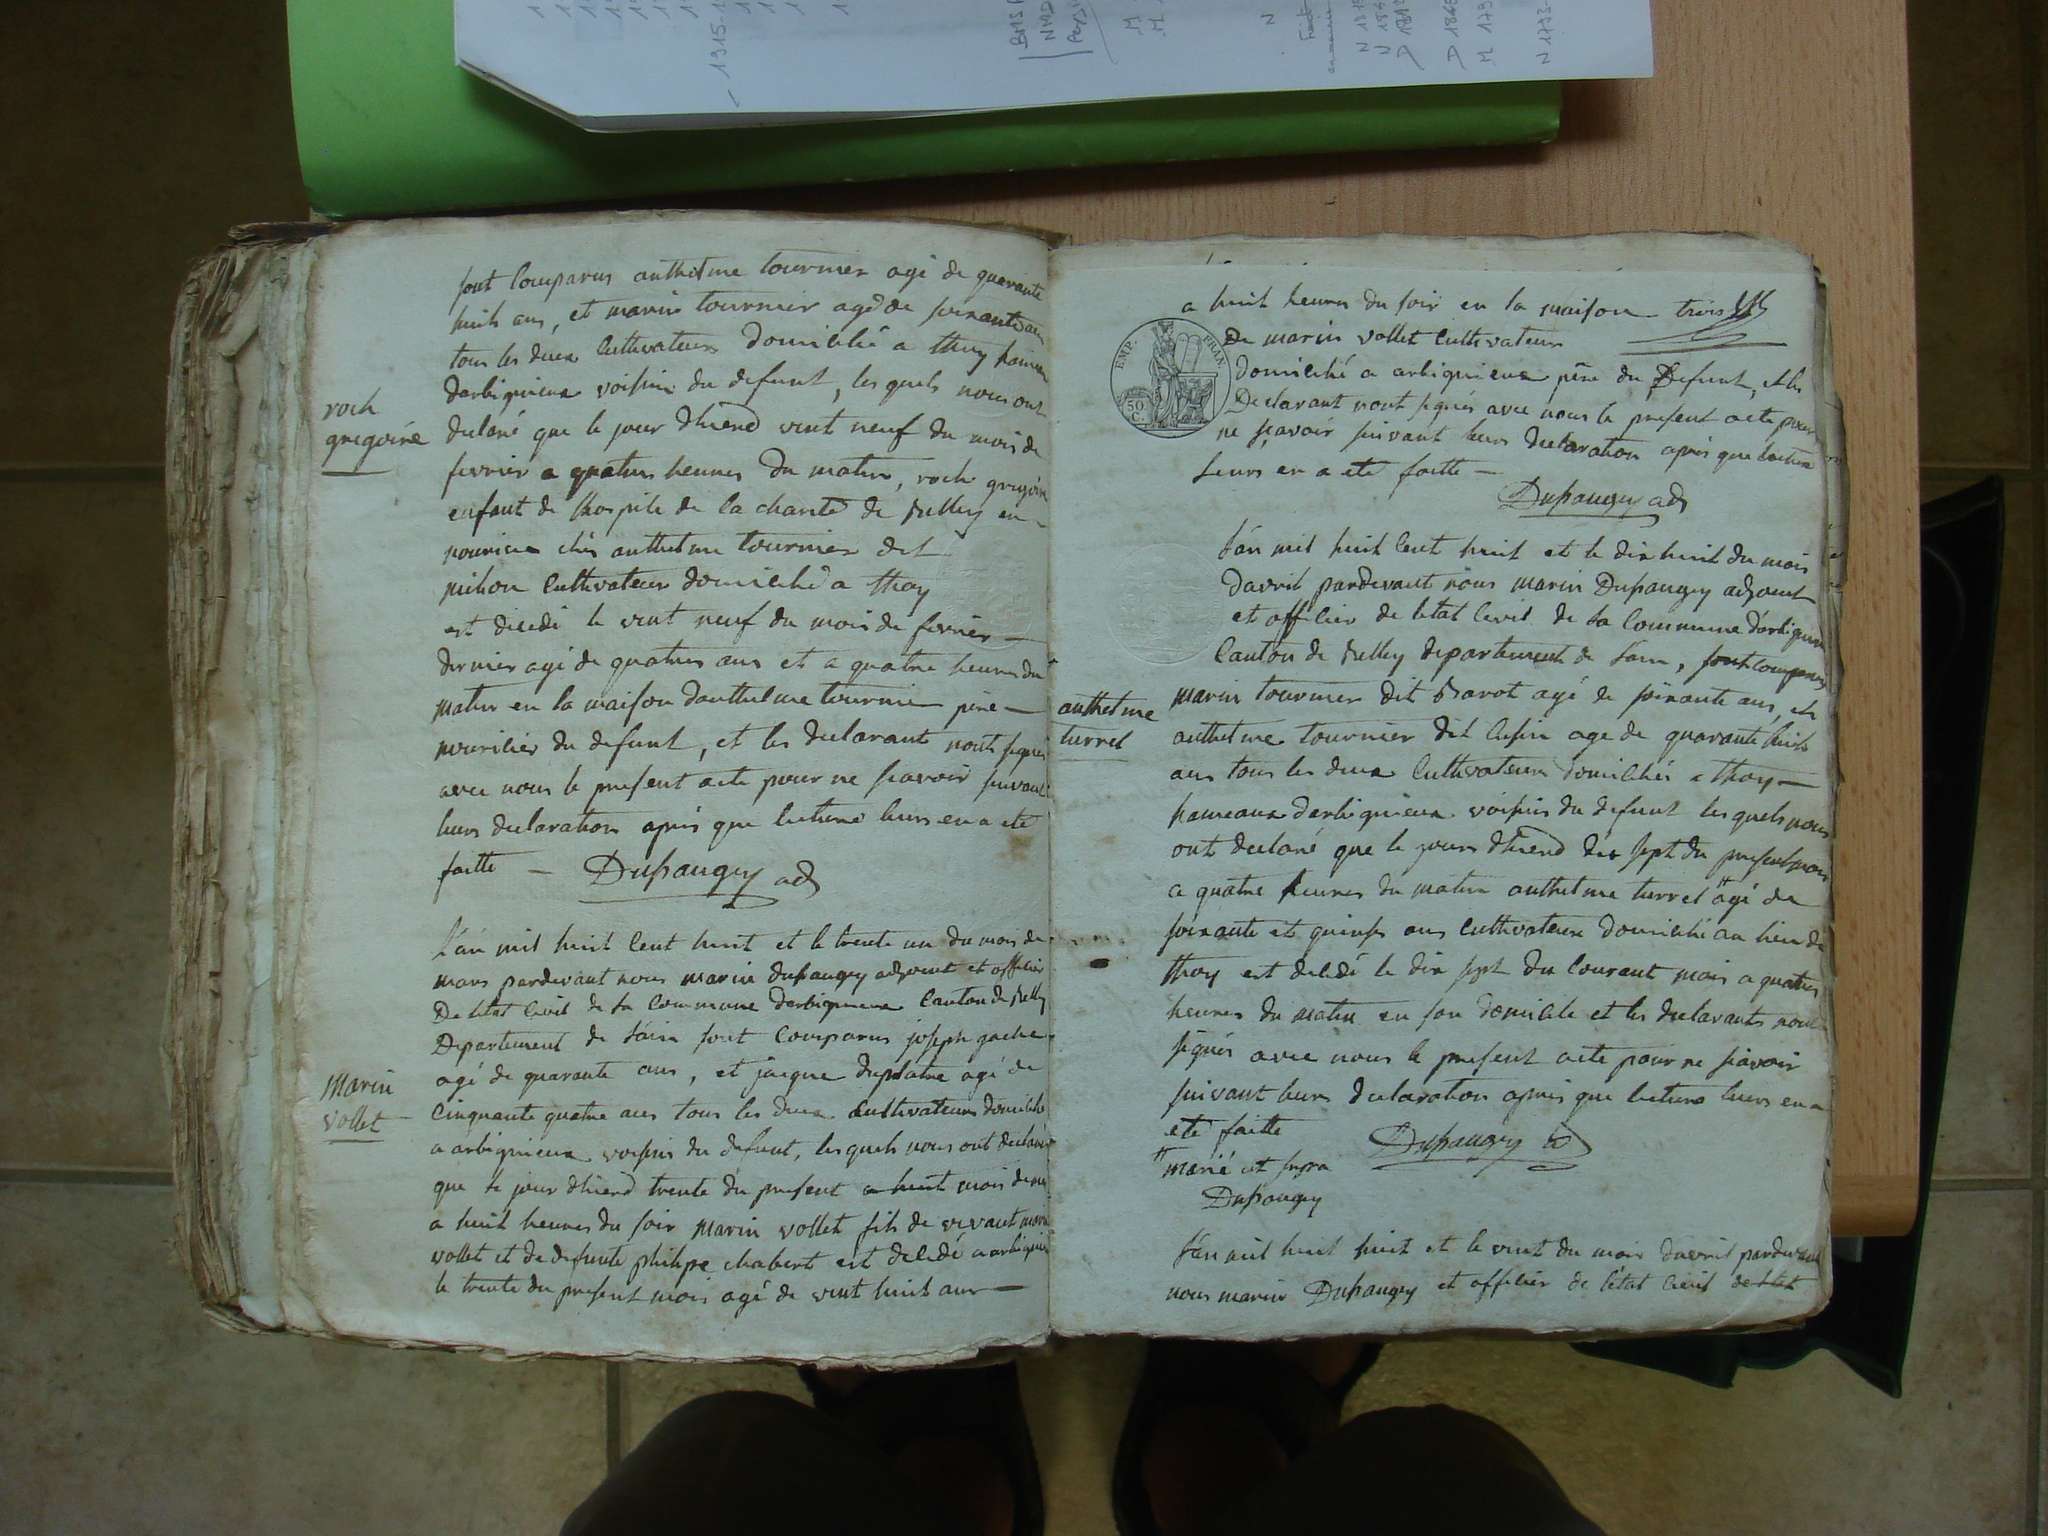 1915-1
BMS
NMD
M
M
N
N 181
N 184
D 1812
D 1868
M 179
N 1773
sont Comparus anthelme tournier agé de quarante
huit ans, et marin tournier agé de soixante ans
tous les deux Cultivateurs domicilié a thoy hameau
darbignieux voisin du defunt, les quels nous ont
declaré que le jour dhierd vint neuf du mois de
fevrier a quatres heures du matin, roch gregoire
enfant de lhospite de la charité de Belley en
nourice chés anthelme tournier dit
michon Cultivateur domicilié a thoy
est decedé le vint neuf du mois de fevrier
dernier agé de quatres ans et a quatre heures du
matin en la maison danthelme tournier père
nouricier du defunt, et les declarant nont signés
avec nous le present acte pour ne scavoir suivant
leurs declaration après que lecture leurs en a eté
faitte — Dupaugey adj
roch
gregoire
l'an mil huit Cent huit et le trente un du mois de
mars pardevant nous marin dupaugey adjoint et officier
De letat Civil de la Commune darbignieux Canton de Belley
Departement de l'ain sont Comparus joseph gache
agé de quarante ans, et jacque duplatre agé de
Cinquante quatre ans tous les deux Cultivateurs domicilié
a arbignieux voisins du defunt, les quels nous ont declaré
que le jour dhierd trente du present a huit mois de mars
a huit heures du soir marin vollet fils de vivant marin
vollet et de defunte philipe chabert est decedé a arbignieux
le trente du present mois agé de vint huit ans
Marin
vollet
a huit heures du soir en la maison trois
De marin vollet Cultivateur
domicilié a arbignieux père du Defunt, et les
Declarant nont signés avec nous le present acte pour
ne scavoir suivant leurs declaration après que lecture
leurs en a eté faitte —
Dupaugey adj
EMP. FRAN
50
C.
l'an mil huit Cent huit et le dix huit du mois
davril pardevant nous marin Dupaugey adjoint
et officier de letat Civil de la Commune darbignieux
Canton de Belley departement de l'ain, sont comparus
marin tournier dit Barot agé de soixante ans, et
anthelme tournier dit age de quarante huit
ans tous les deux Cultivateurs domiciliés a thoy
hameaux darbignieux voisins du defunt les quels nous
ont declaré que le jour dhierd dix sept du present mois
a quatre heures du matin anthelme turrel # agé de
soixante et quinse ans Cultivateur domicilié au lieu de
thoy est decedé le dix sept du Courant mois a quatres
heures du matin en son domicile et les declarants nont
signés avec nous le present acte pour ne scavoir
suivant leurs declaration après que lecture leurs en a
eté faitte Dupaugey adj
# marié ut supra
Dupaugey
anthelme
turrel
l'an mil huit huit et le vint du mois davril pardevant
nous marin Dupaugey et officier de l'état Civil de letat